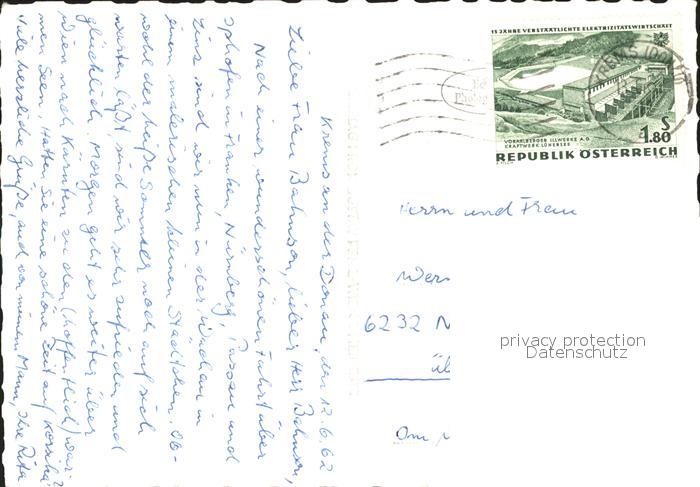 Krems an der Donau, den 12.6.62
Liebe Frau Bahnson, lieber Herr Bahnson,
Nach einer wunderschönen Fahrt über
Iphofen in Franken, Nürnberg, Passau und
Linz sind wir nun in der Wachau in
einem malerischen kleinen Städtchen. Ob-
wohl der heiße Sommer noch auf sich
warten läßt, sind wir sehr zufrieden und
glücklich. Morgen geht es weiter über
Wien nach Kärnten zu den (hoffentlich) war-
men Seen. Hatten Sie eine schöne Zeit auf Korsika?
Viele herzliche Grüße, auch von meinem Mann, Ihre Rita
15 JAHRE VERSTAATLICHTE ELEKTRIZITÄTSWIRTSCHAFT
S
1.80
VORARLBERGER ILLWERKE A.G.
KRAFTWERK LÜNERSEE
REPUBLIK ÖSTERREICH
KREMS
Herrn und Frau
6232
privacy protection
Datenschutz